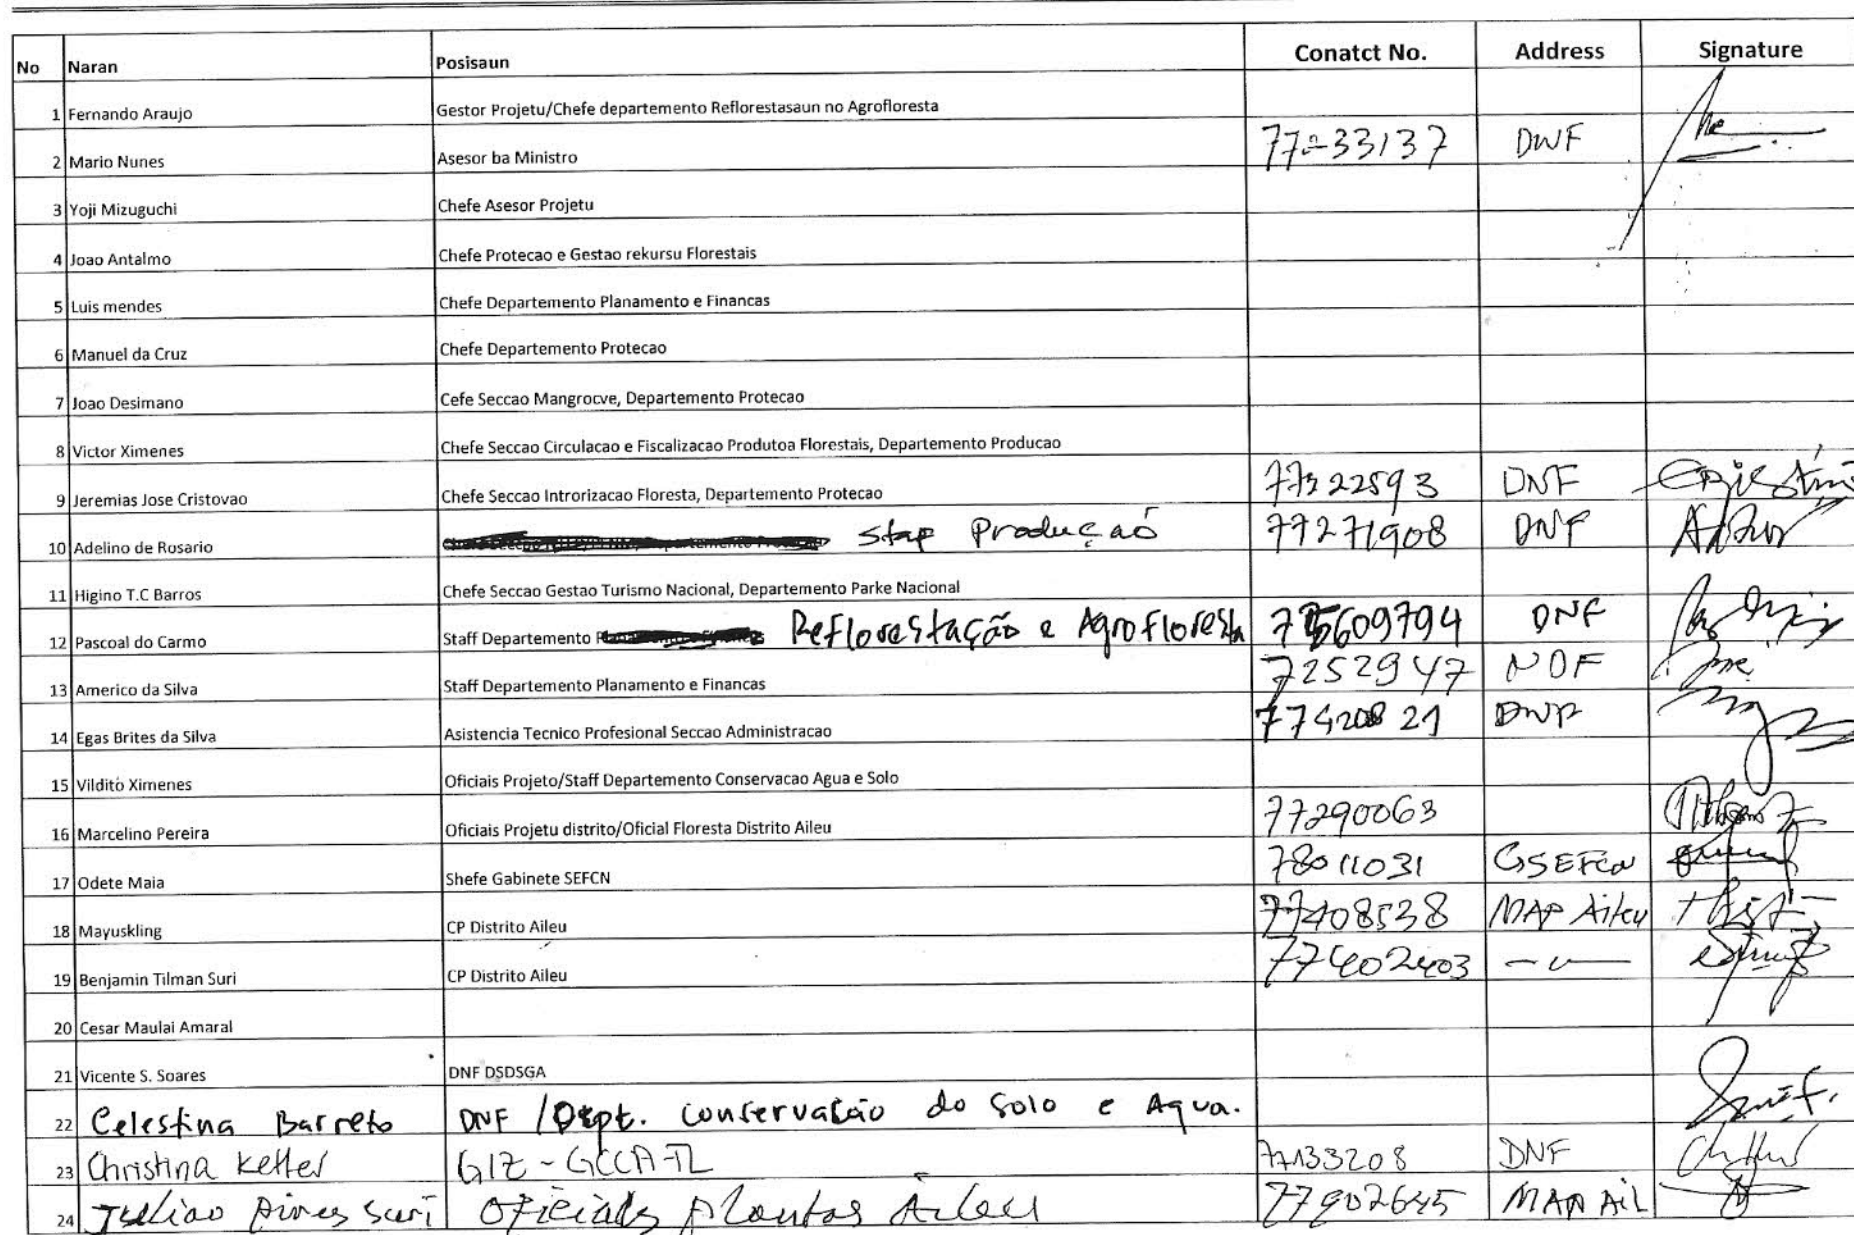 No Naran Posisaun Conatct No. Address Signature
1 Fernando Araujo Gestor Projetu/Chefe departemento Reflorestasaun no Agrofloresta
2 Mario Nunes Asesor ba Ministro DNF
3 Yoji Mizuguchi Chefe Asesor Projetu
4 Joao Antalmo Chefe Protecao e Gestao rekursu Florestais
5 Luis mendes Chefe Departemento Planamento e Financas
6 Manuel da Cruz Chefe Departemento Protecao
7 Joao Desimano Cefe Seccao Mangrocve, Departemento Protecao
8 Victor Ximenes Chefe Seccao Circulacao e Fiscalizacao Produtoa Florestais, Departemento Producao
9 Jeremias Jose Cristovao Chefe Seccao Introrizacao Floresta, Departemento Protecao 77322593 DNF
10 Adelino de Rosario Produçaõ 77271908 DNF
11 Higino T.C Barros Chefe Seccao Gestao Turismo Nacional, Departemento Parke Nacional
12 Pascoal do Carmo Staff Departemento Reflorestação e Agrofloresta DNF
13 Americo da Silva Staff Departemento Planamento e Financas 7252947 NDF
14 Egas Brites da Silva Asistencia Tecnico Profesional Seccao Administracao DNF
15 Vildito Ximenes Oficiais Projeto/Staff Departemento Conservacao Agua e Solo
16 Marcelino Pereira Oficiais Projetu distrito/Oficial Floresta Distrito Aileu 77290063
17 Odete Maia Shefe Gabinete SEFCN 78011031 GSEFCN
18 Mayuskling CP Distrito Aileu 77408538 MAP Aileu
19 Benjamin Tilman Suri CP Distrito Aileu
20 Cesar Maulai Amaral
21 Vicente S. Soares DNF DSDSGA
22 Celestina Barreto DNF /Dept. Conservacão do Solo e Agua.
23 Christina Keller GIZ - GCCA-TL 77133208 DNF
24 Juliao Pires Suri Oficiais Plantas Aileu MAP AiL